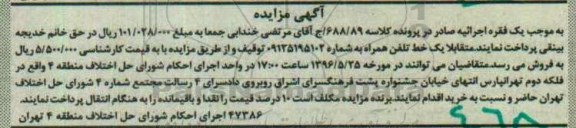 آگهی مزایده
به موجب یک فقره اجرائیه صادر در پرونده کلاسه ۶۸۸/۸۹/ج آقای مرتضی خندابی جمعا به مبلغ ۱۰۱/۰۳۸/۰۰۰ ریال در حق خانم خدیجه
بینقی پرداخت نمایند.متقابلا یک خط تلفن همراه به شماره ۰۹۱۲۵۱۹۵۱۰۲ توقیف و از طریق مزایده با به قیمت کارشناسی ۵/۵۰۰/۰۰۰ ریال
به فروش می رسد.متقاضیان می توانند در مورخه ۱۳۹۶/۵/۲۵ ساعت ۱۷:۰۰ در واحد اجرای احکام شورای حل اختلاف منطقه ۴ واقع در
فلکه دوم تهرانپارس انتهای خیابان جشنواره پشت فرهنگسرای اشراق روبروی دادسرای ۴ رسالت مجتمع شماره ۴ شورای حل اختلاف
تهران حاضر و نسبت به خرید اقدام نمایند.برنده مزایده مکلف است ۱۰ درصد قیمت را نقدا و باقیمانده را به هنگام انتقال پرداخت نمایند.
۴۷۳۸۶ اجرای احکام شورای حل اختلاف منطقه ۴ تهران